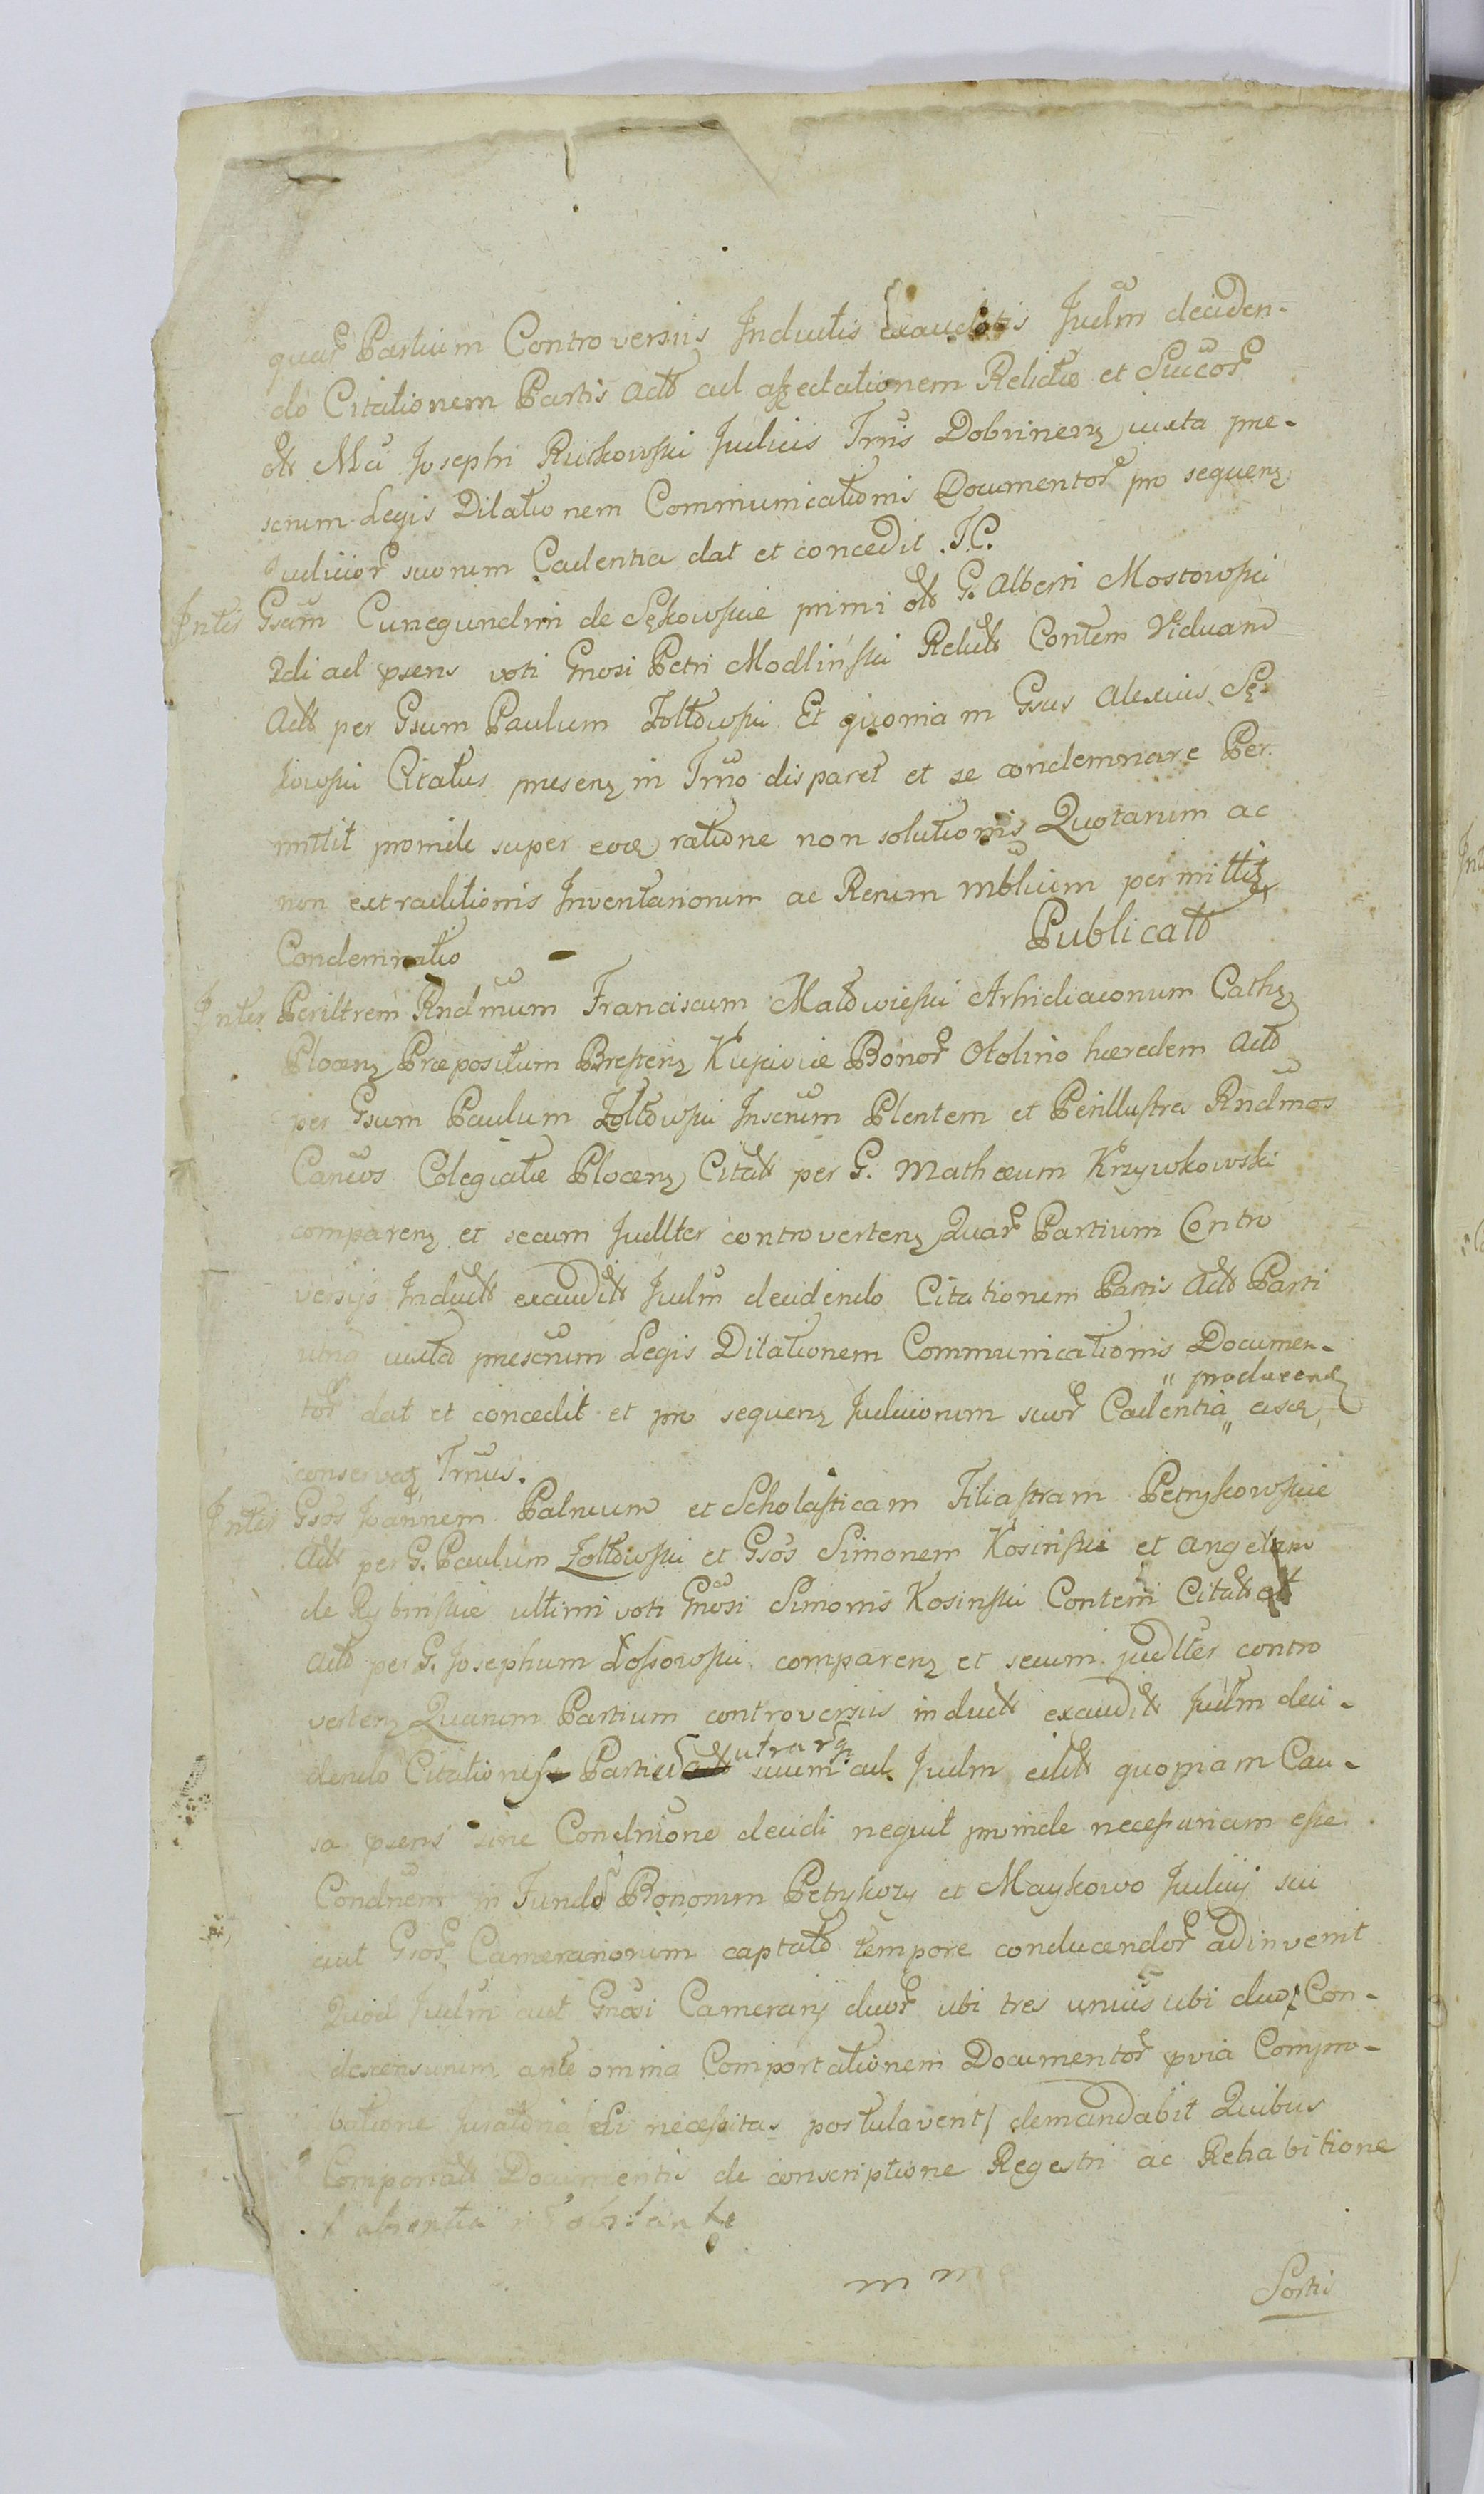 quar Partium Controversiis Inductis Exauditis Judm deciden-
do Citationem Partis Actt ad affectationem Relictæ et Succor
ott Mci Josephi Rutkowski Judicis Trris Dobrinens juxta pre-
scrium Legis Dilationem Communicationis Documentor pro sequens
Judicior suorum Cadentia dat et concedit. T.C.
Inter Gsam Cunegundim de Sękowskie primi ott G. Alberti Mostowski
2di ad psens voti Gnosi Petri Modliński Relict Contem Viduam
Actt per Gsum Paulum Żołtowski Et quoniam Gsus Alexius Sę-
kowski Citatus presens in Trmo disparet et se condemnare Per-
mittit proinde super eoq ratione non solutionis Quotarum ac
non extraditionis Inventariorum ac Rerum mblium permittit
Condemnatio Publicatt
Inter Perilltrem Rndmum Franciscum Małowieski Arhidiaconum Cathz
Plocens Præpositum Brestens Kujaviæ Bonor Otolino hæredem Actt
per Gsum Paulum Żołtowski Inscrium Plentem et Perillustres Rndmos
Cancos Colegiatæ Plocens Citatt per G. Mathæum Krzywkowski
comparens et secum Judlter controvertens Quar Partium Contro
versijs Induct exaudit Judm decidendo Citationem Partis Actt Parti
juxta prescrium Legis Dilationem Communicationis Documen-
" producens
tor dat et concedit et pro sequens Judiciorum suor Cadentia "
conservat Trmus.
Inter Gsos Joannem Patruum et Scholasticam Filiastram Petrykowskie
Actt per G. Paulum Żołtowski et Gsos Simonem Kosinski et Angelam
de Rybinskie ultimi voti Gnosi Simonis Kosinski Contem Citatt ott
Actt per G. Josephum Lossowski comparens et secum judlter contro
vertens Quarum Partium controversiis induct exaudit Judm deci-
utrarq
dendo Citationes Partium suum ad Judm edit quoniam Cau-
sa psens sine Condnsione decidi nequit proinde necessariam esse
Condnem in Fundo Bonorum Petrykozy et Maykowo Judicij sui
aut Gsor Camerariorum captato tempore conducendor adinvenit
Quod Judm aut Gnosi Camerarij duor ubi tres unius ubi duo Con-
descensurum ante omnia Comportationem Documentor pvia Compro-
batione juratoria si necessitas postulaverit demandabit Quibus
Comportatt Documentis de conscriptione Regestri ac Rehabitione
absentia obstante
Partis